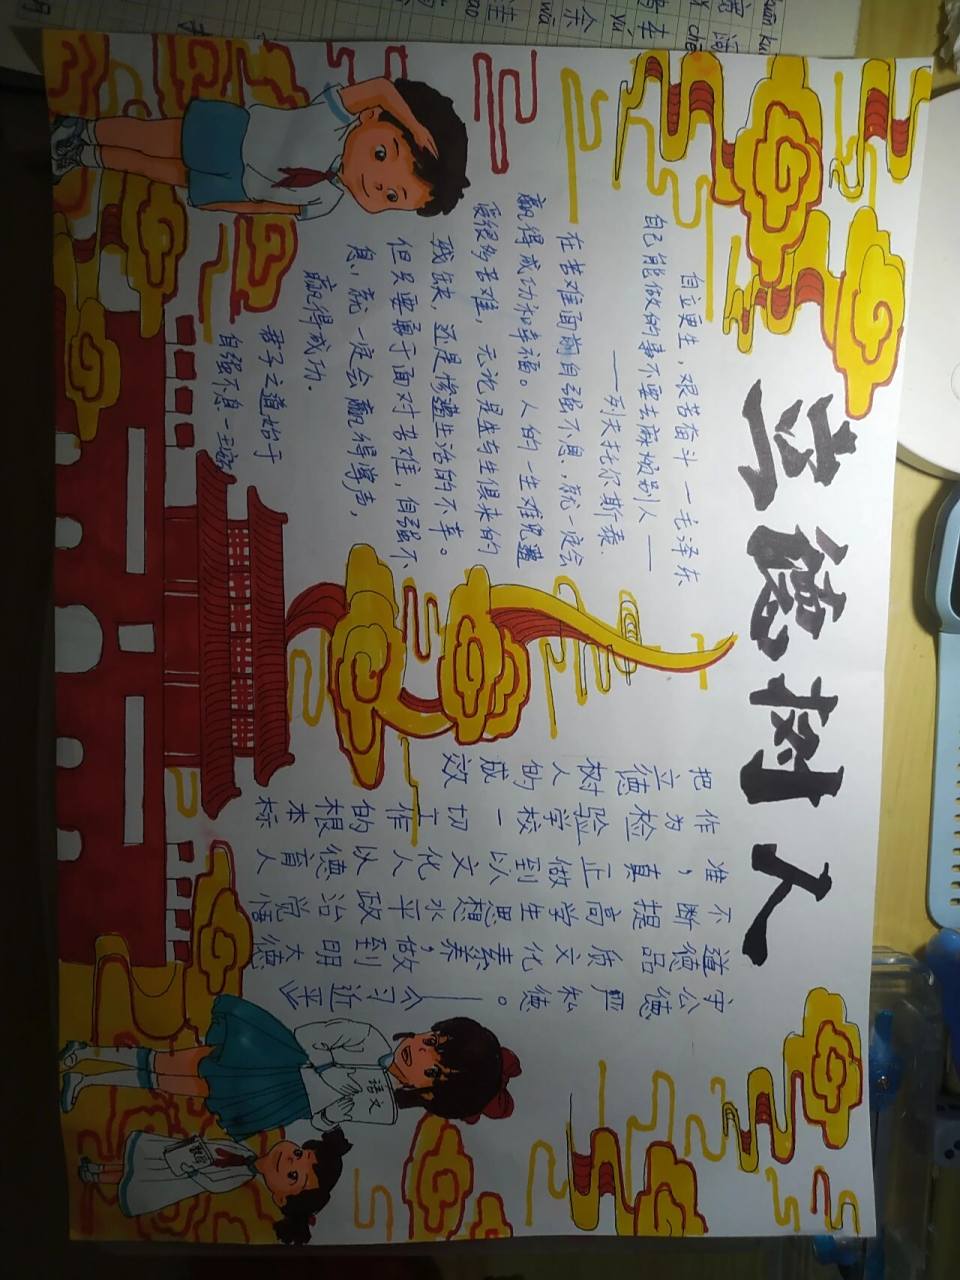 立德树人
自立更生，艰苦奋斗 一毛泽东
自己能做的事不要去麻烦别人——
——列夫托尔斯泰
在苦难面前自强不息，就一定会
赢得成功和幸福。人的一生难免遭
受很多苦难，无论是与生俱来的
残缺，还是惨遭生活的不幸。
但只要敢于面对苦难，自强不
息，就一定会赢得掌声，
赢得成功。
君子之道始于
自强不息 一
把立德树人的成效
作为检验学校一切工作的根本标
准，真正做到以文化人以德育人
不断提高学生思想水平政治觉悟
道德品质文化素养，做到明大德
守公德严私德。——习近平
语文